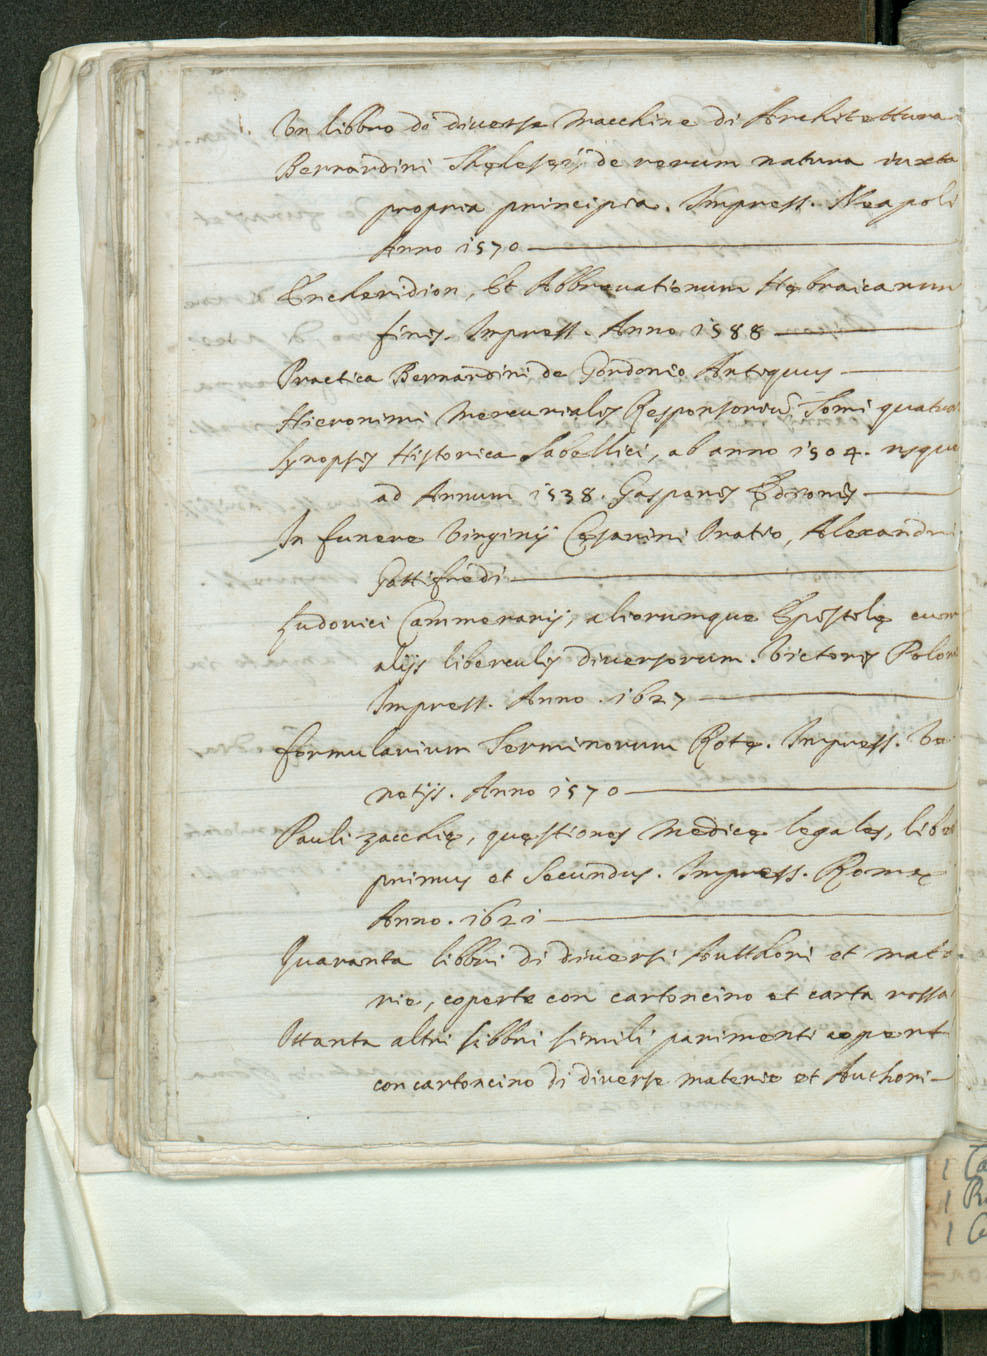 1. Un libbro di diverse Macchine di Architettura
Bernardini Thelesij, de rerum natura iuxta
propria principia. Impress. Neapoli
Anno 1570
Encheridion, et Abbrevationum Hębraicarum
finis. Impress. Anno 1588
Practica Bernardini de Gordonio Antiquus
Hieronimi Mercurialis Responsoriũ Tomi quatuor
Synopsis Historica Sabellici, ab anno 1504. usque
ad Annum 1538. Gasparis
In funere Virginij Cęsarini Oratio, Alexandri
Gottifredi
Ludovici Cammerarij, aliorumque Epistolę cum
alijs liberculis diversorum. Victoris Poloni
Impress. Anno. 1627
Formularium Terminorum Rotę. Impress. Ve
netijs. Anno 1570
Pauli Zacchię, quęstiones Medicę legales, liber
primus et Secundus. Impress. Romę
Anno. 1621
Quaranta libbri di diversi Autthori et mate
rie, coperte con cartoncino et carta rossa
Ottanta altri libbri simili parimenti copert
con cartoncino di diverse materie et Authori